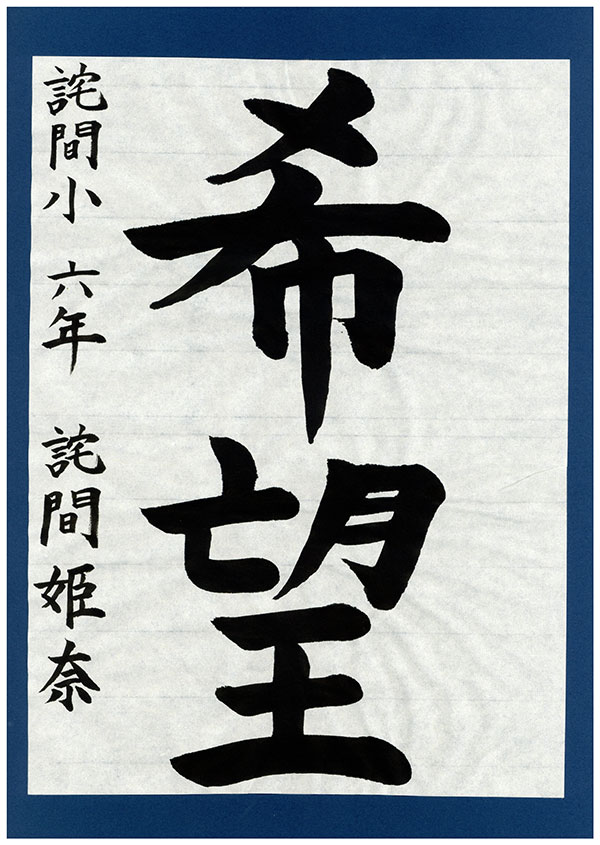 希望
詫間小 六年 詫間姫奈